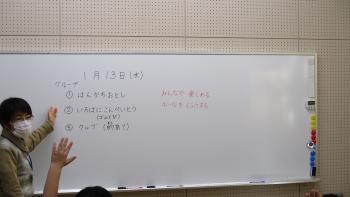 1月13日(水)
グループ
① はんかちおとし
② いろはにこんぺいとう
(ゴムとび)
③ タップ (的あて)
みんなで 楽しめる
ルールを くふうする